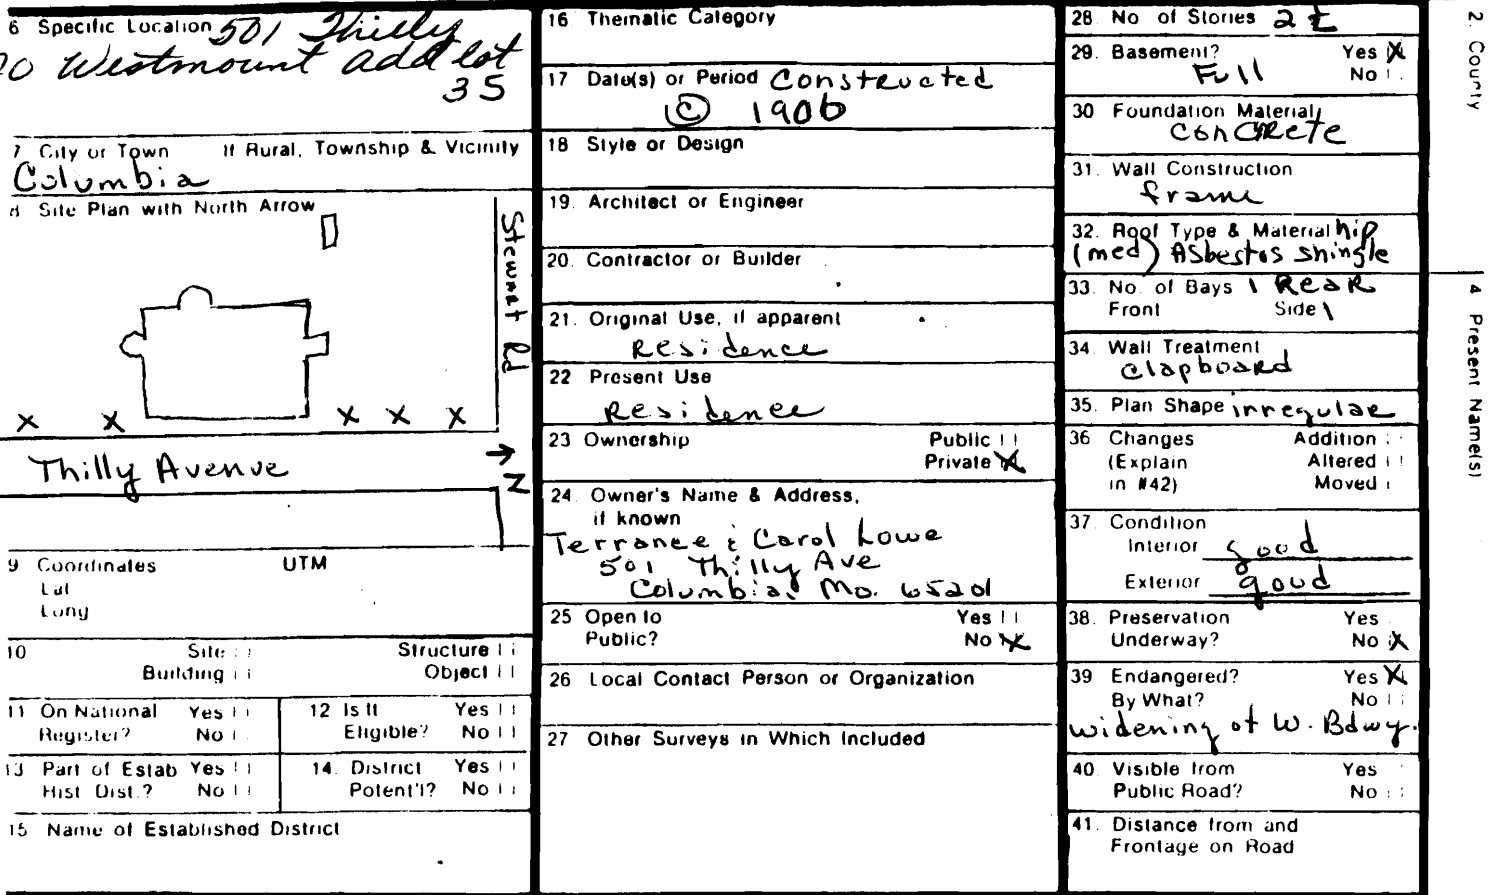 6 Specific Location 501 Thilly
Westmount add lot
35
7 City or Town If Rural, Township & Vicinity
Columbia
8 Site Plan with North Arrow
Stewart Rd
Thilly Avenue
N
9 Coordinates UTM
Lat
Long
10 Site Structure
Building Object
11 On National Yes
Register? No
12 Is It Yes
Eligible? No
13 Part of Estab Yes
Hist Dist.? No
14. District Yes
Potent'l? No
15 Name of Established District
16 Thematic Category
17 Date(s) or Period Constructed
© 1906
18 Style or Design
19. Architect or Engineer
20. Contractor or Builder
21. Original Use, if apparent
Residence
22 Present Use
Residence
23 Ownership Public
Private X
24. Owner's Name & Address,
if known
Terrance & Carol Lowe
501 Thilly Ave
Columbia, Mo. 65201
25 Open to Yes
Public? No X
26 Local Contact Person or Organization
27 Other Surveys in Which Included
28. No of Stories 2 ½
29. Basement? Yes X
Full No
30 Foundation Material
concrete
31. Wall Construction
frame
32. Roof Type & Material hip
(med) Asbestos shingle
33. No. of Bays 1 Rear
Front Side 1
34. Wall Treatment
clapboard
35. Plan Shape irregular
36. Changes Addition
(Explain Altered
in #42) Moved
37. Condition
Interior good
Exterior good
38. Preservation Yes
Underway? No X
39 Endangered? Yes X
By What? No
widening of W. Bdwy.
40. Visible from Yes
Public Road? No
41. Distance from and
Frontage on Road
2. County
4 Present Name(s)